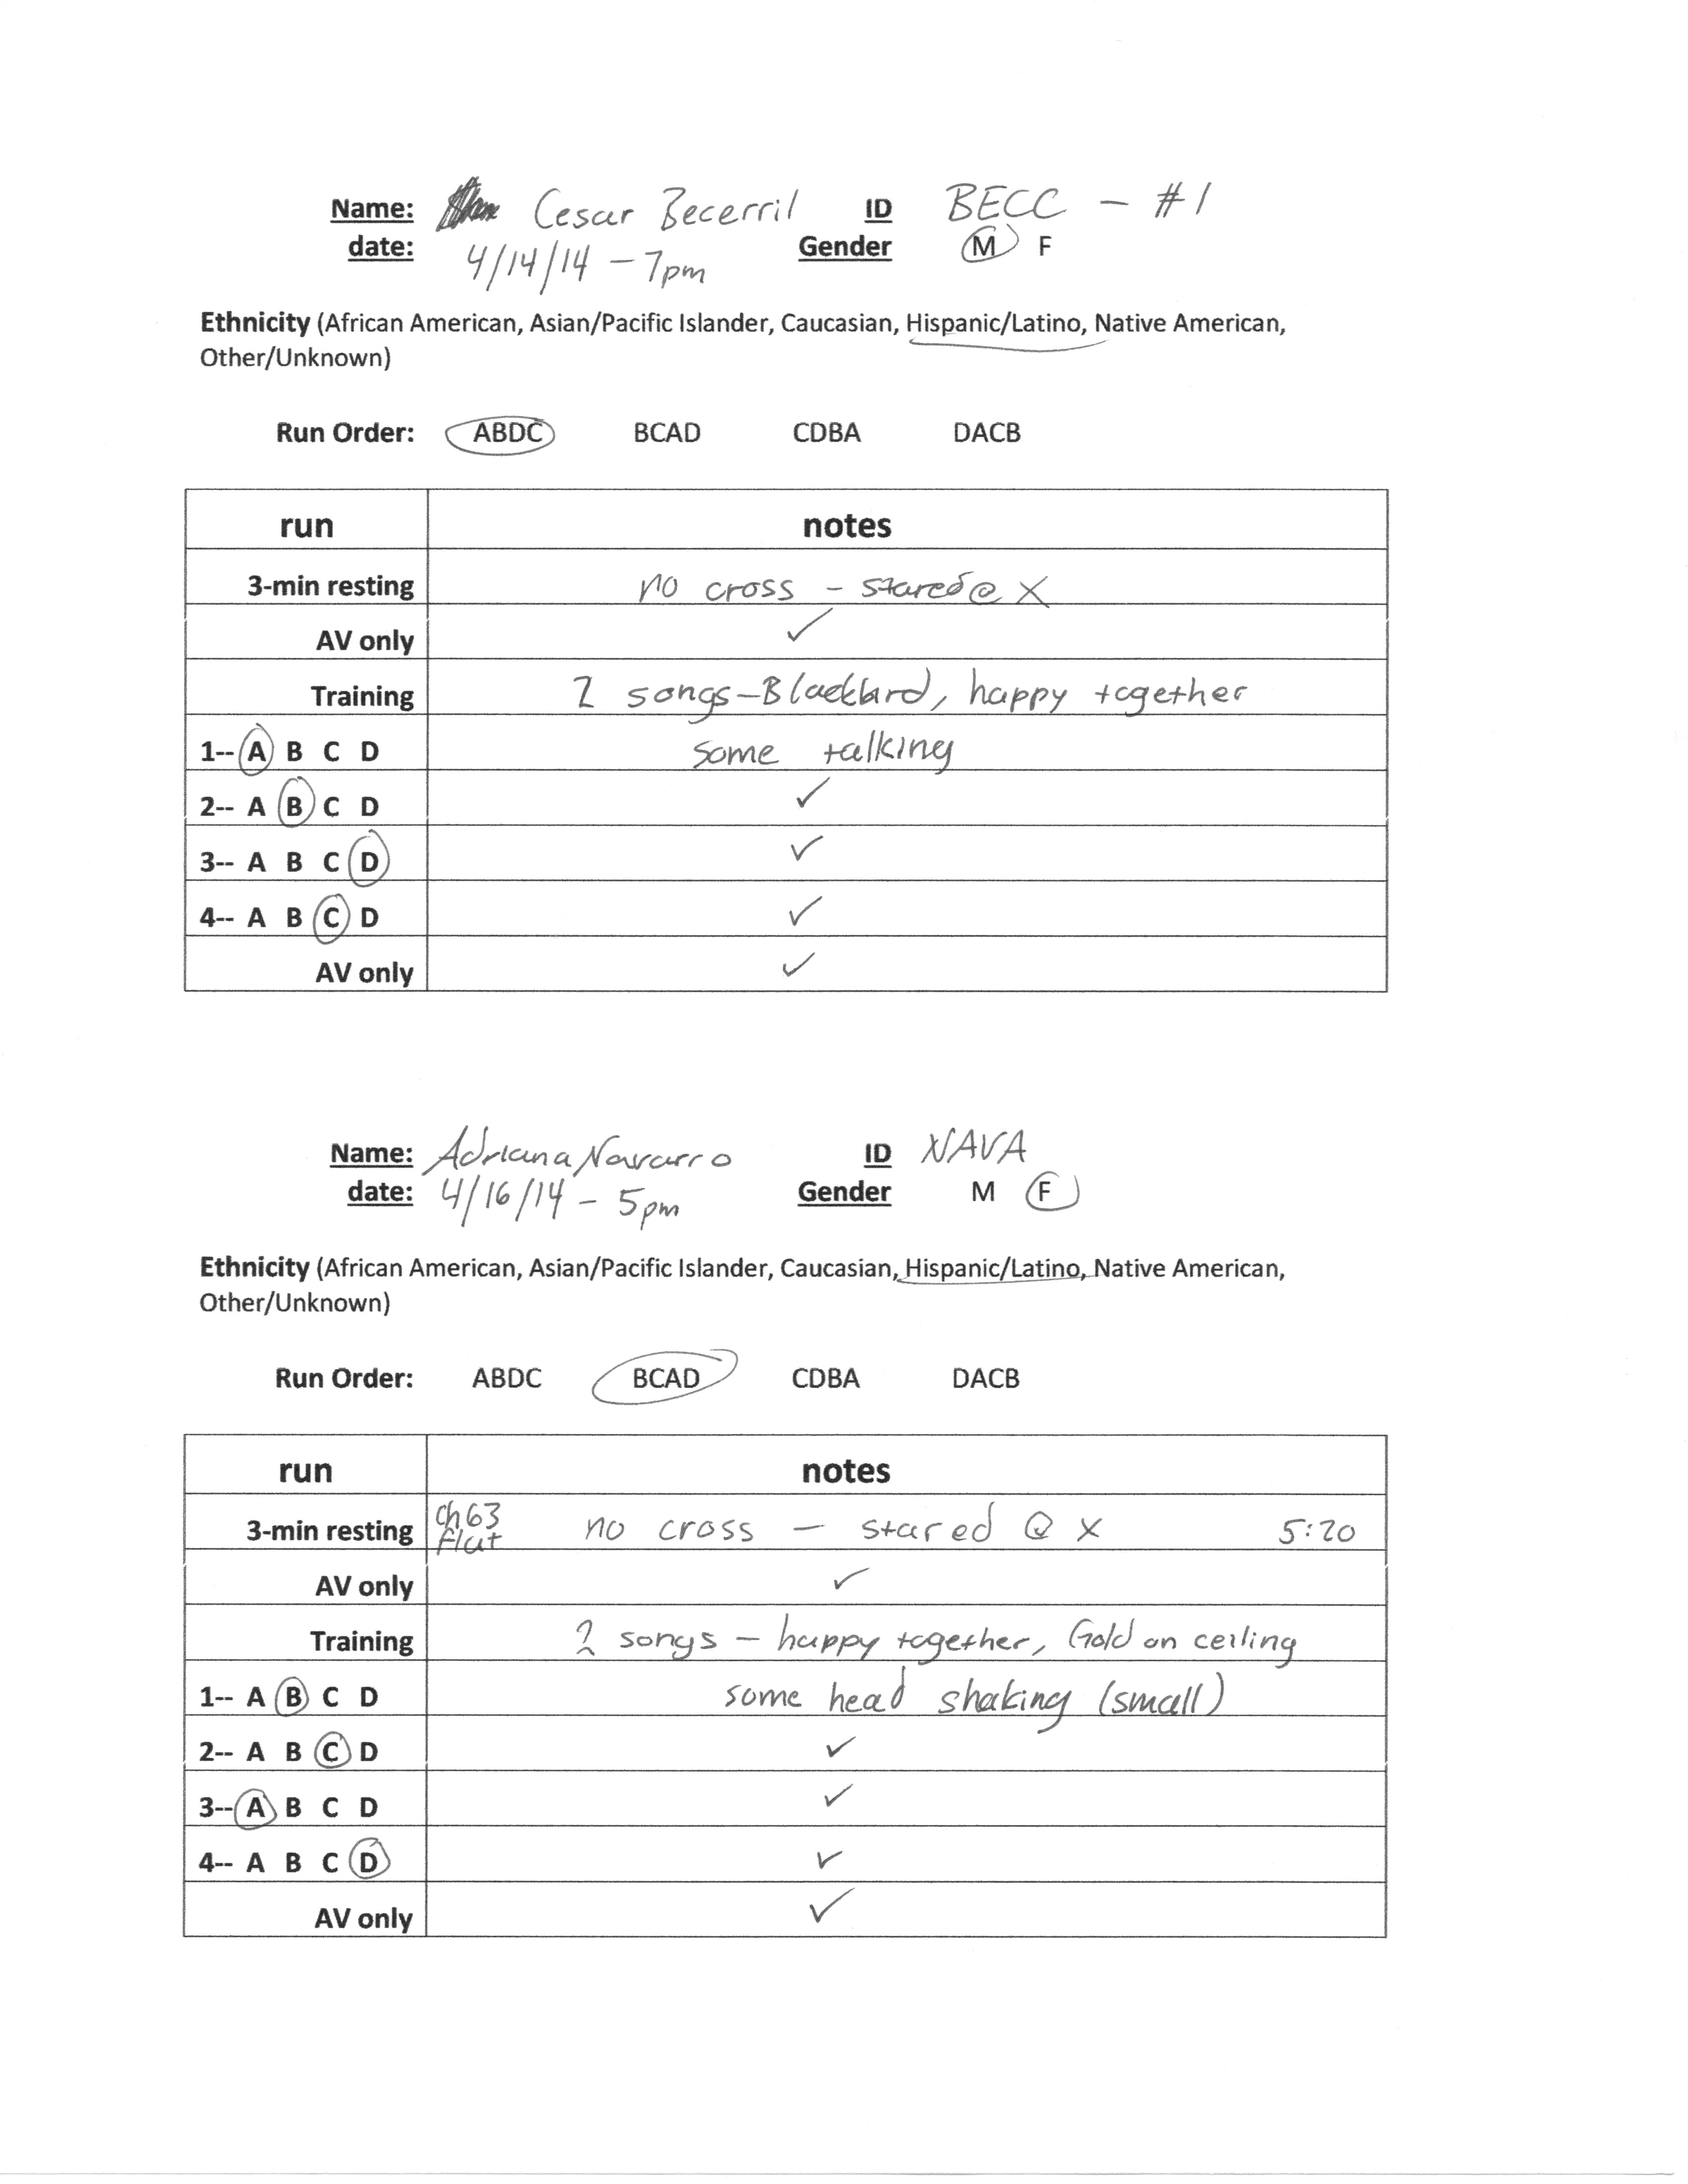 Name: Cesar Becerril ID BECC - #1
date: 4/14/14 - 7pm Gender M F
Ethnicity (African American, Asian/Pacific Islander, Caucasian, Hispanic/Latino, Native American,
Other/Unknown)
Run Order: ABDC BCAD CDBA DACB
run notes
3-min resting no cross - stared @ X
AV only ✓
Training 2 songs - Blackbird, happy together
1-- A B C D some talking
2-- A B C D ✓
3-- A B C D ✓
4-- A B C D ✓
AV only ✓
Name: Adriana Navarro ID NAVA
date: 4/16/14 - 5pm Gender M F
Ethnicity (African American, Asian/Pacific Islander, Caucasian, Hispanic/Latino, Native American,
Other/Unknown)
Run Order: ABDC BCAD CDBA DACB
run notes
3-min resting ch63 flat no cross - stared @ X 5:20
AV only ✓
Training 2 songs - happy together, Gold on ceiling
1-- A B C D some head shaking (small)
2-- A B C D ✓
3-- A B C D ✓
4-- A B C D ✓
AV only ✓